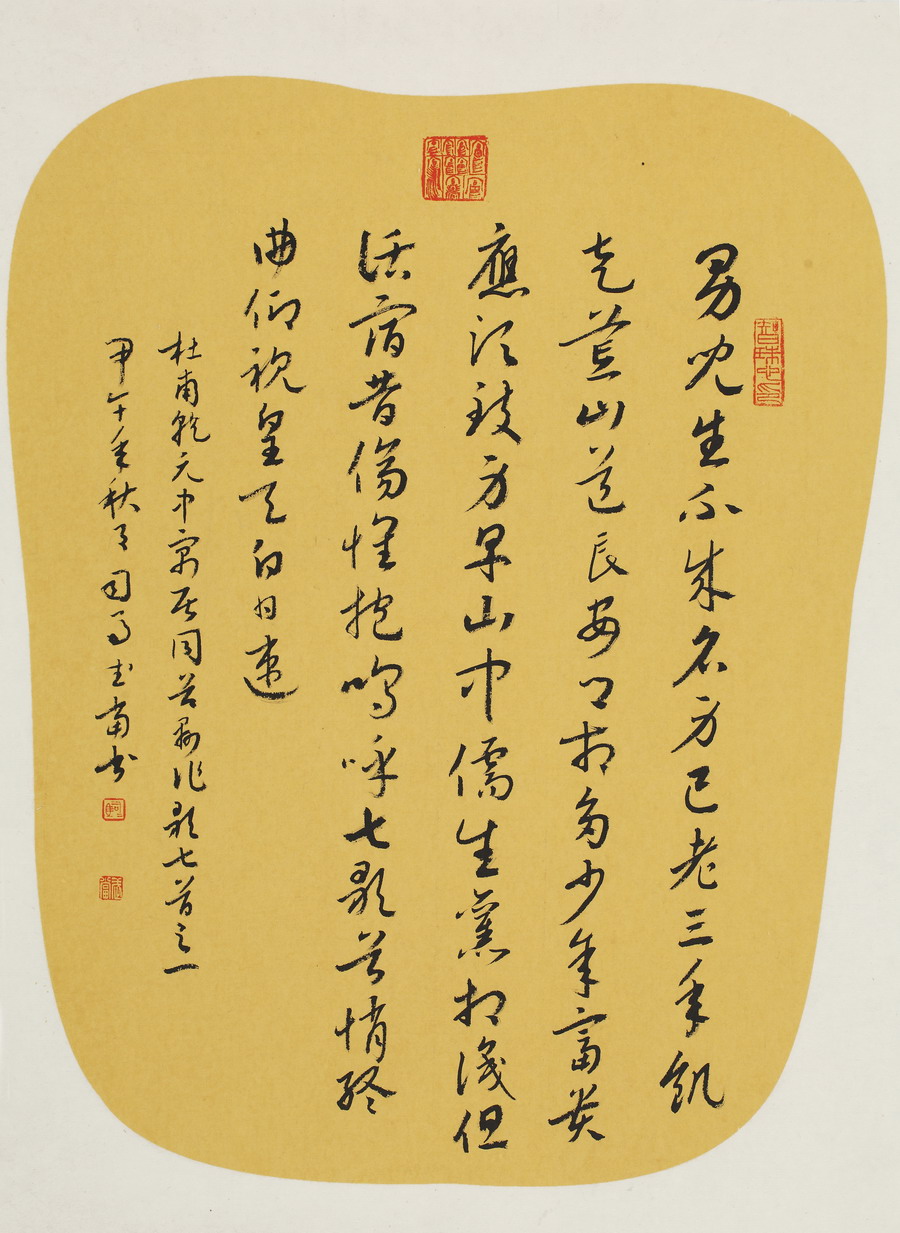 男兒生不成名身已老三年飢
走荒山道長安卿相多少年富貴
應須致身早山中儒生舊相識但
話宿昔傷懷抱嗚呼七歌兮悄終
曲仰視皇天白日速
杜甫乾元中寓居同谷縣作歌七首之一
甲午年秋月司馬武當書